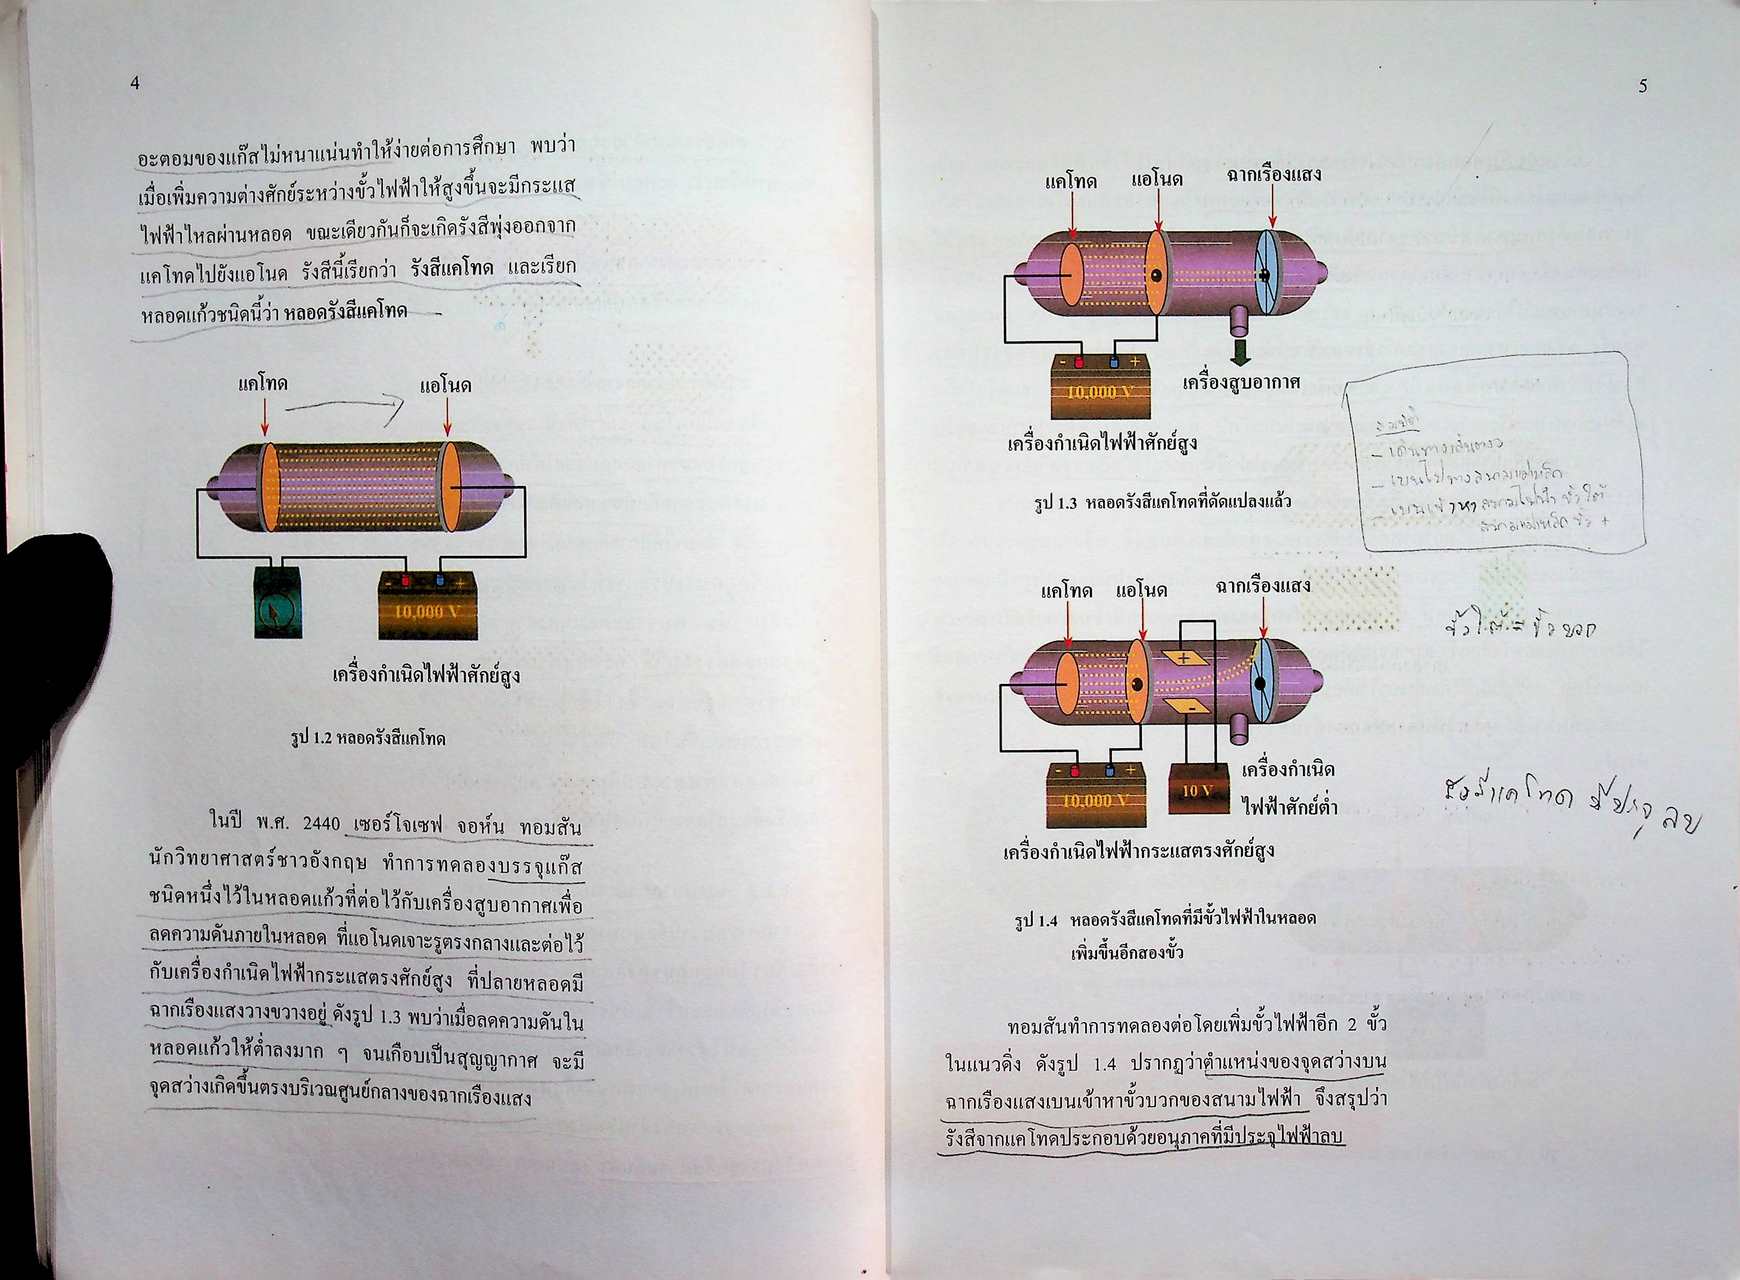 4
อะตอมของแก๊สไม่หนาแน่นทำให้ง่ายต่อการศึกษา พบว่า
เมื่อเพิ่มความต่างศักย์ระหว่างขั้วไฟฟ้าให้สูงขึ้นจะมีกระแส
ไฟฟ้าไหลผ่านหลอด ขณะเดียวกันก็จะเกิดรังสีพุ่งออกจาก
แคโทดไปยังแอโนด รังสีนี้เรียกว่า รังสีแคโทด และเรียก
หลอดแก้วชนิดนี้ว่า หลอดรังสีแคโทด
แคโทด แอโนด
- +
10,000 V
เครื่องกำเนิดไฟฟ้าศักย์สูง
รูป 1.2 หลอดรังสีแคโทด
ในปี พ.ศ. 2440 เซอร์โจเซฟ จอห์น ทอมสัน
นักวิทยาศาสตร์ชาวอังกฤษ ทำการทดลองบรรจุแก๊ส
ชนิดหนึ่งไว้ในหลอดแก้วที่ต่อไว้กับเครื่องสูบอากาศเพื่อ
ลดความดันภายในหลอด ที่แอโนดเจาะรูตรงกลางและต่อไว้
กับเครื่องกำเนิดไฟฟ้ากระแสตรงศักย์สูง ที่ปลายหลอดมี
ฉากเรืองแสงวางขวางอยู่ ดังรูป 1.3 พบว่าเมื่อลดความดันใน
หลอดแก้วให้ต่ำลงมาก ๆ จนเกือบเป็นสุญญากาศ จะมี
จุดสว่างเกิดขึ้นตรงบริเวณศูนย์กลางของฉากเรืองแสง
5
แคโทด แอโนด ฉากเรืองแสง
- +
10,000 V
เครื่องสูบอากาศ
เครื่องกำเนิดไฟฟ้าศักย์สูง
รูป 1.3 หลอดรังสีแคโทดที่ดัดแปลงแล้ว
สมบัติ
- เดินทางเส้นตรง
- เบนไปทางสนามแม่เหล็ก
- เบนเข้าหาสนามไฟฟ้า ขั้วใต้
สนามแม่เหล็ก ขั้ว +
แคโทด แอโนด ฉากเรืองแสง
+
-
ขั้วใต้ = ขั้วบวก
- +
10,000 V
10 V
เครื่องกำเนิด
ไฟฟ้าศักย์ต่ำ
รังสีแคโทด มีประจุลบ
เครื่องกำเนิดไฟฟ้ากระแสตรงศักย์สูง
รูป 1.4 หลอดรังสีแคโทดที่มีขั้วไฟฟ้าในหลอด
เพิ่มขึ้นอีกสองขั้ว
ทอมสันทำการทดลองต่อโดยเพิ่มขั้วไฟฟ้าอีก 2 ขั้ว
ในแนวดิ่ง ดังรูป 1.4 ปรากฏว่าตำแหน่งของจุดสว่างบน
ฉากเรืองแสงเบนเข้าหาขั้วบวกของสนามไฟฟ้า จึงสรุปว่า
รังสีจากแคโทดประกอบด้วยอนุภาคที่มีประจุไฟฟ้าลบ